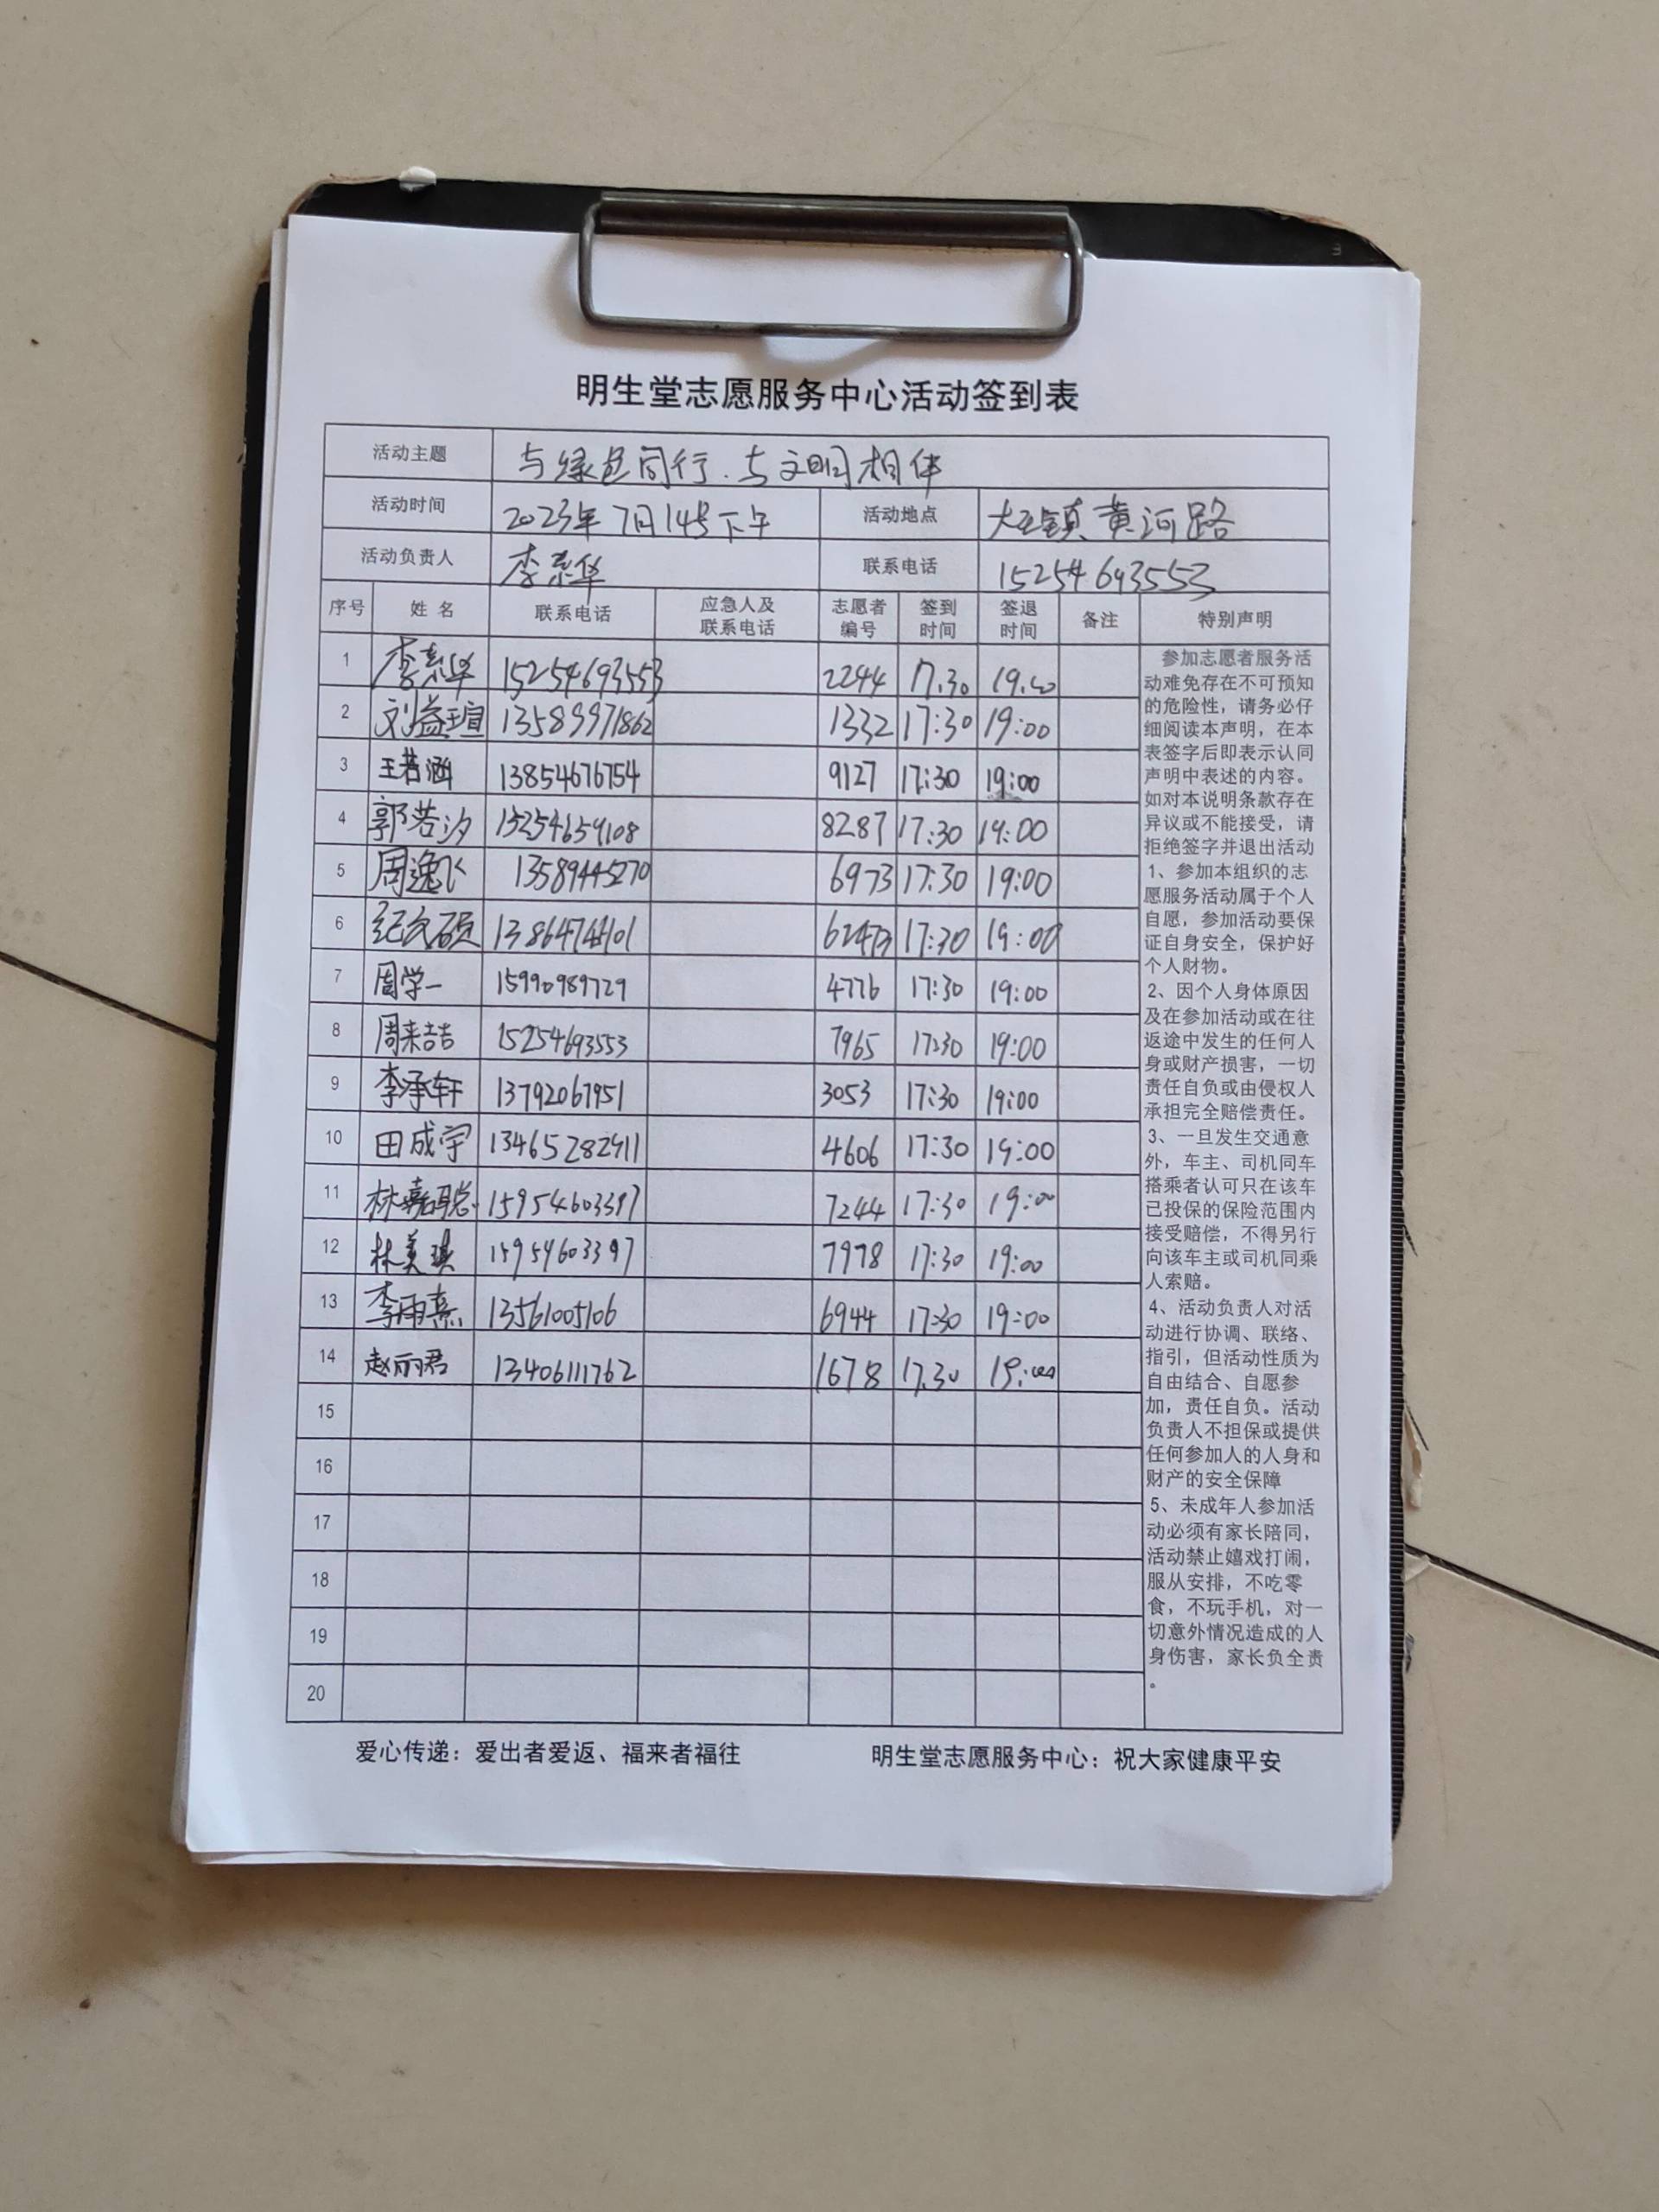 明生堂志愿服务中心活动签到表
活动主题 与绿色同行.与文明相伴
活动时间 2023年7月14号下午 活动地点 大王镇黄河路
活动负责人 李景华 联系电话 15254693553
序号 姓名 联系电话 应急人及联系电话 志愿者编号 签到时间 签退时间 备注 特别声明
1 李景华 15254693553 2244 17.30 19.00
2 刘益瑄 13589971862 1332 17:30 19:00
3 王若涵 13854676754 9127 17:30 19:00
4 郭若汐 15254659108 8287 17:30 19:00
5 周逸飞 13589445270 6973 17:30 19:00
6 17:30 19:00
7 周学一 15990989729 4776 17:30 19:00
8 周来吉 15254693553 7965 17:30 19:00
9 李承轩 13792067951 3053 17:30 19:00
10 田成宇 13465282911 4606 17:30 19:00
11 林嘉聪 15954603397 7244 17:30 19:00
12 林美琪 15954603397 7978 17:30 19:00
13 李雨熹 13561005106 6944 17:30 19:00
14 赵丽君 13406111762 1678 17.30 19:00
15
16
17
18
19
20
参加志愿者服务活
动难免存在不可预知
的危险性，请务必仔
细阅读本声明，在本
表签字后即表示认同
声明中表述的内容。
如对本说明条款存在
异议或不能接受，请
拒绝签字并退出活动
1、参加本组织的志
愿服务活动属于个人
自愿，参加活动要保
证自身安全，保护好
个人财物。
2、因个人身体原因
及在参加活动或在往
返途中发生的任何人
身或财产损害，一切
责任自负或由侵权人
承担完全赔偿责任。
3、一旦发生交通意
外，车主、司机同车
搭乘者认可只在该车
已投保的保险范围内
接受赔偿，不得另行
向该车主或司机同乘
人索赔。
4、活动负责人对活
动进行协调、联络、
指引，但活动性质为
自由结合、自愿参
加，责任自负。活动
负责人不担保或提供
任何参加人的人身和
财产的安全保障
5、未成年人参加活
动必须有家长陪同，
活动禁止嬉戏打闹，
服从安排，不吃零
食，不玩手机，对一
切意外情况造成的人
身伤害，家长负全责
。
爱心传递：爱出者爱返、福来者福往 明生堂志愿服务中心：祝大家健康平安